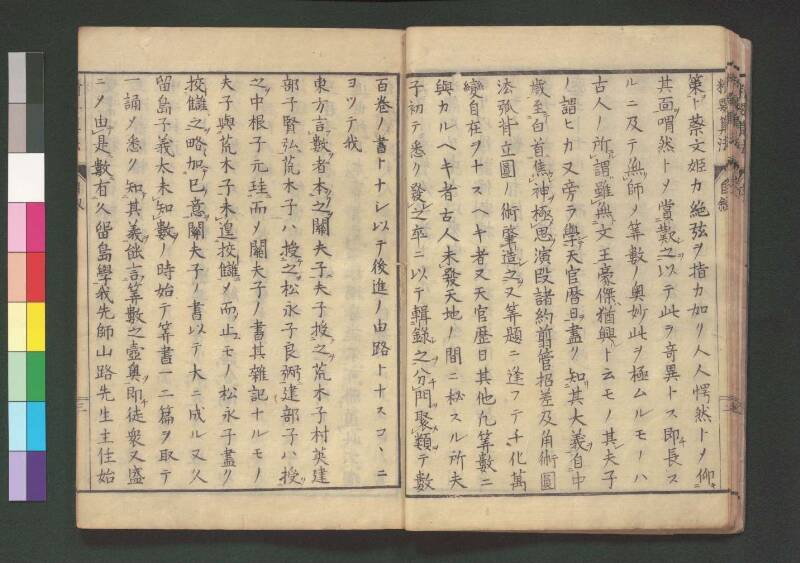 策ト蔡文姫カ絶弦ヲ指カ如リ人人愕然トヲ仰
其面喟然トヲ賞歎之以テ此ヲ奇異トス即長ス
ルニ及テ無師ノ筭數ノ奥妙此ヲ極ムルモノハ
古人ノ所謂雖無文王豪傑猶興ト云モノ其夫子
ノ謂ヒカ又旁ラ學天官暦日盡リ知其大義自中
歳至白首焦神極思演段諸約翦管招差及角術圓
法弧背立圓ノ術肇造之又筭題ニ逢フテ千化萬
變自在ヲナスヘキ者又天官歴日其他凡筭數ニ
與カルヘキ者古人未發天地ノ間ニ秘スル所夫
子初テ悉ク發之卒ニ以テ輯録之分門聚類テ數
百卷ノ書トナシ以テ後進ノ由路トナスコヽニ
ヨツテ我
東方言數者本之關夫子夫子授之荒木子村英建
部子賢弘荒木子ハ授之松永子良弼建部子ハ授
之中根子元珪而メ關夫子ノ書其雜記ナルモノ
夫子與荒木子未遑挍讎ヲ而止モノ松永子盡ク
挍讎之略加已意關夫子ノ書以テ大ニ成ル又久
留島子義太未知數ノ時始テ筭書一二篇ヲ取テ
一誦ノ悉ク知其義後言筭數之壼奥即徒衆又盛
ニメ由是數有久留島學我先師山路先生主住始